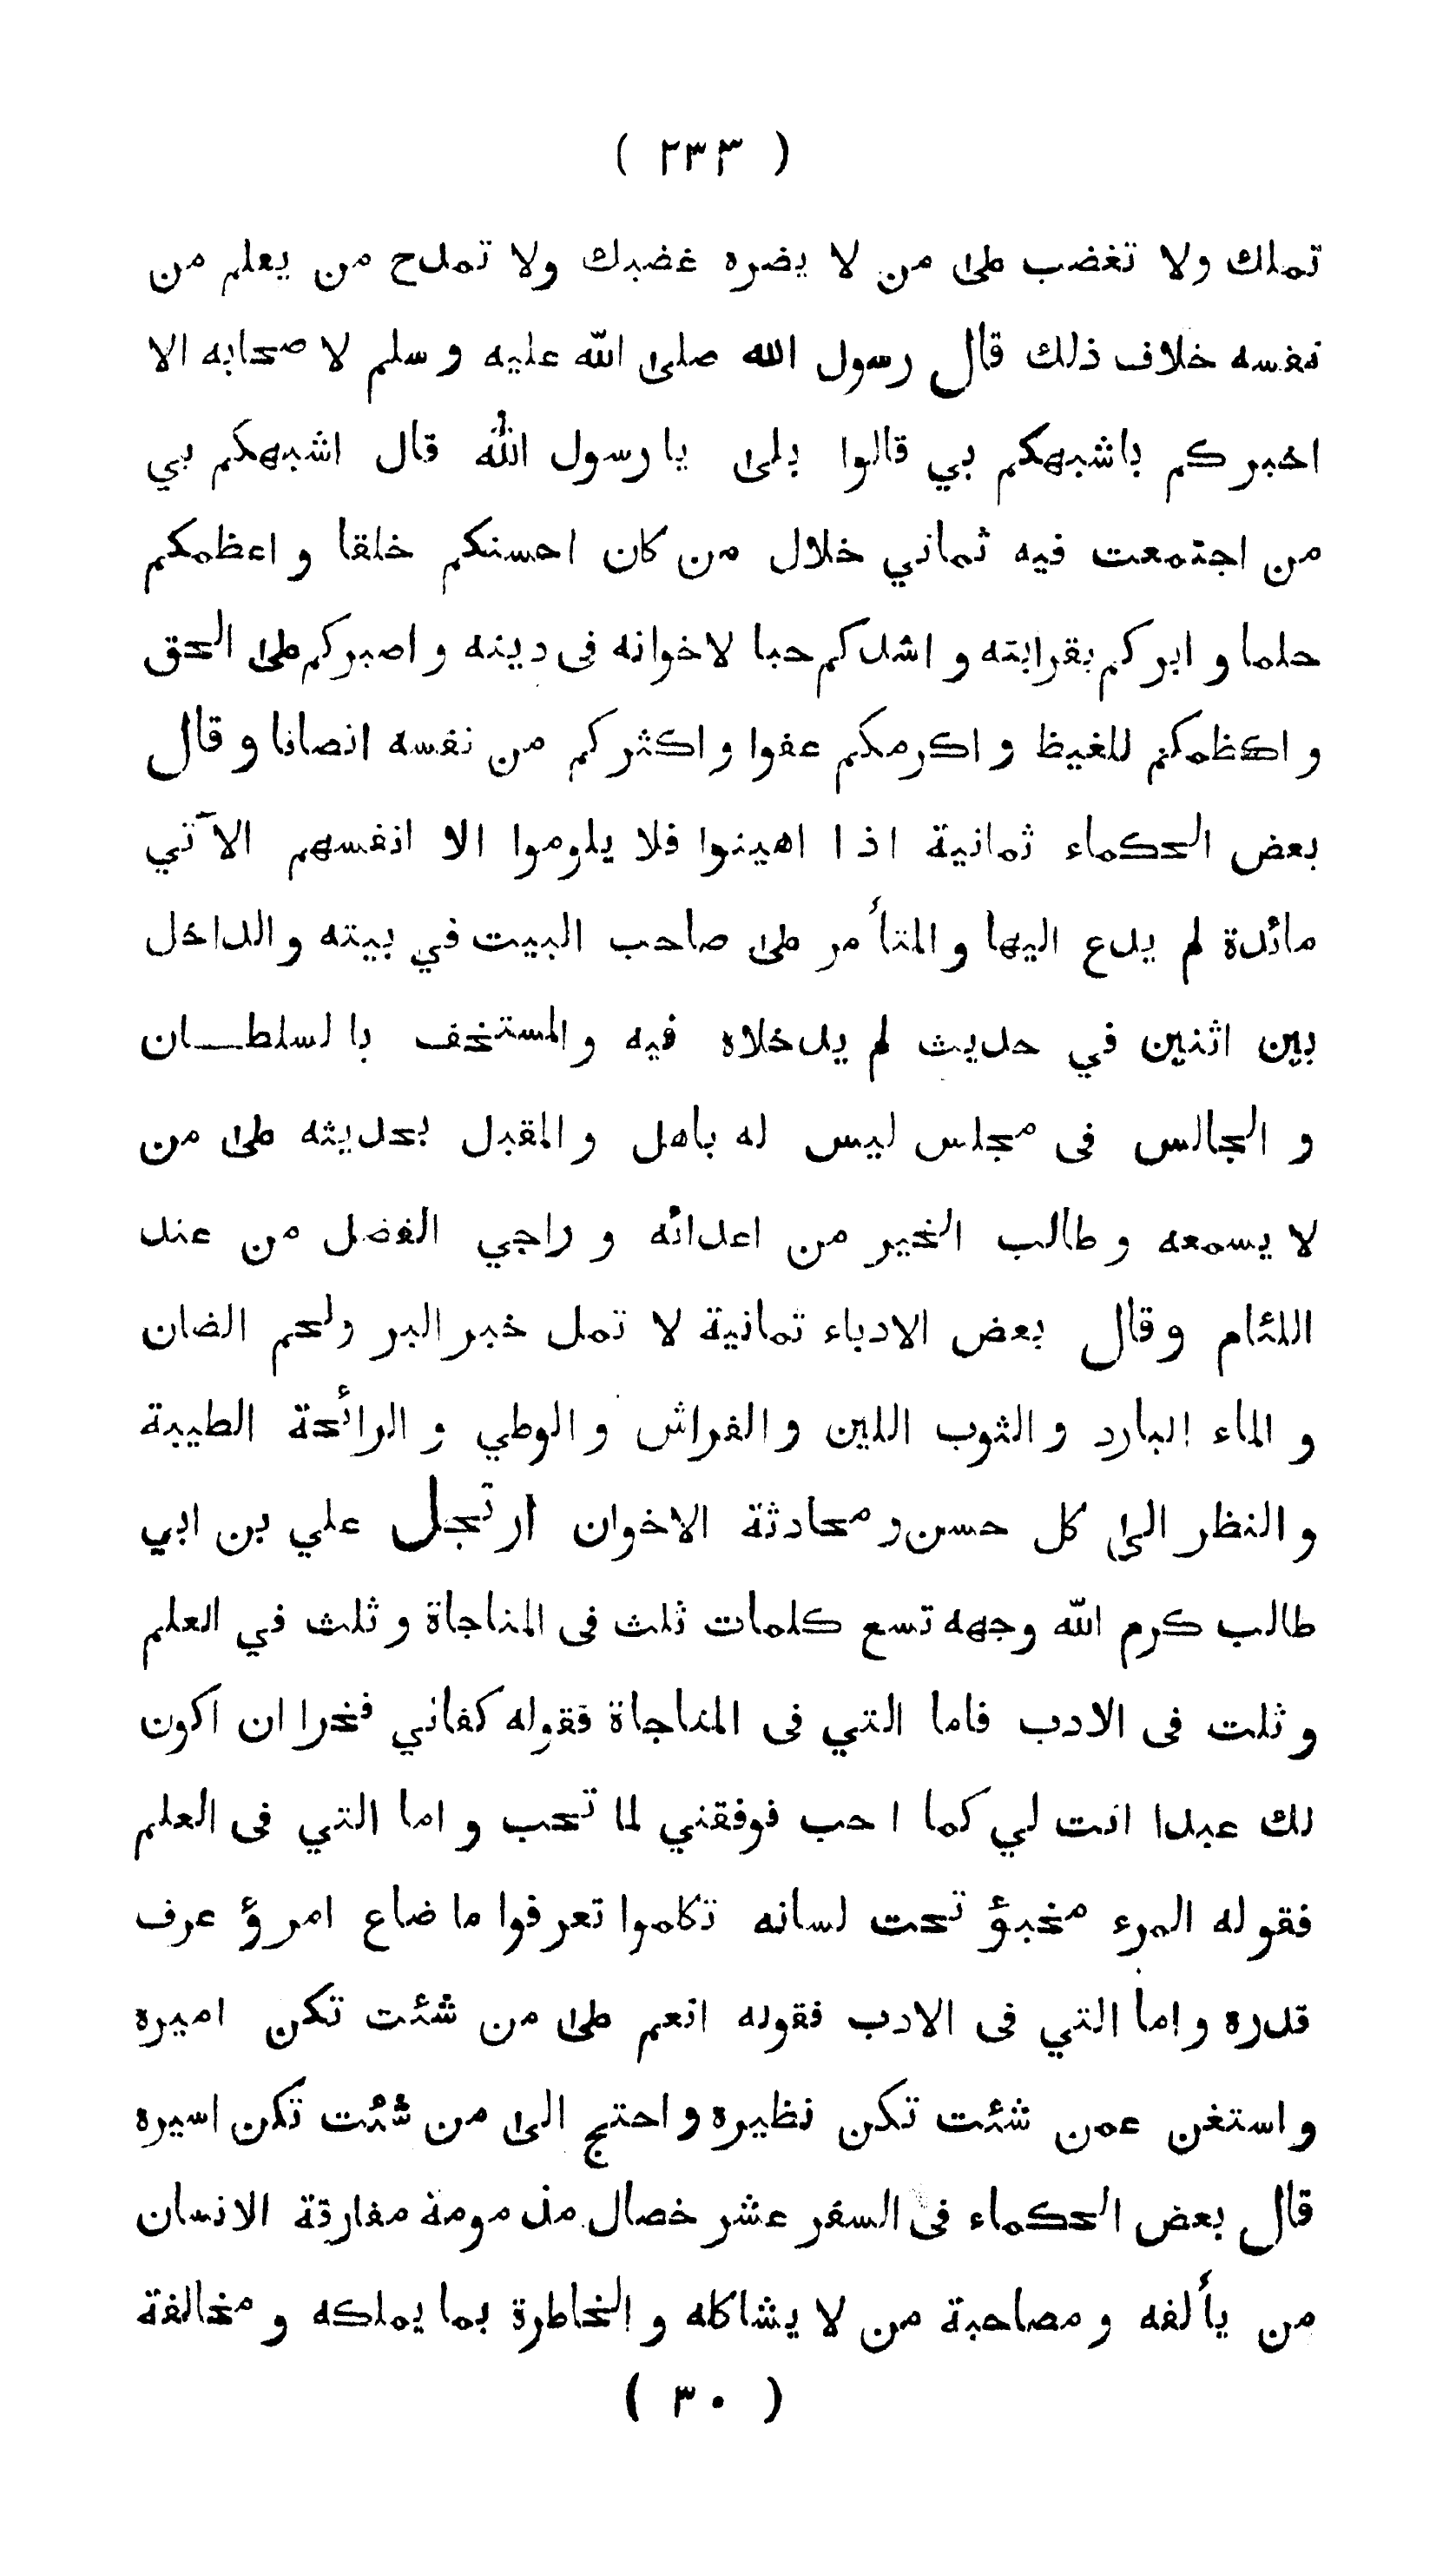 ( ٢٣٣ )
تملك ولا تغضب على من لا يضره غضبك ولا تمدح من يعلم من
نفسه خلاف ذلك قال رسول الله صلى الله عليه وسلم لاصحابه الا
اخبركم باشبهكم بي قالوا بلى يا رسول الله قال اشبهكم بي
من اجتمعت فيه ثماني خلال من كان احسنكم خلقا و اعظمكم
حلما و ابركم بقرابته و اشدكم حبا لاخوانه فى دينه و اصبركم على الحق
و اكظمكم للغيظ و اكرمكم عفوا و اكثركم من نفسه انصانا و قال
بعض الحكماء ثمانية اذا اهينوا فلا يلوموا الا انفسهم الآتي
مائدة لم يدع اليها و المتأمر على صاحب البيت في بيته و الداخل
بين اثنين في حديث لم يدخلاه فيه و المستخف بالسلطـــان
و الجالس فى مجلس ليس له باهل و المقبل بحديثه على من
لا يسمعه و طالب الخير من اعدائه و راجي الفضل من عند
اللئام و قال بعض الادباء ثمانية لا تمل خبر البر ولحم الضان
و الماء البارد و الثوب اللين و الفراش و الوطي و الرائحة الطيبة
و النظر الى كل حسن و محادثة الاخوان ارتجل علي بن ابي
طالب كرم الله وجهه تسع كلمات ثلث فى المناجاة و ثلث في العلم
و ثلت فى الادب فاما التي فى المناجاة فقوله كفاني فخرا ان اكون
لك عبدا انت لي كما احب فوفقني لما تحب و اما التي فى العلم
فقوله المرء مخبؤ تحت لسانه تكلموا تعرفوا ما ضاع امرؤ عرف
قدره و اما التي فى الادب فقوله انعم على من شئت تكن اميره
و استغن عمن شئت تكن نظيره و احتج الى من شئت تكن اسيره
قال بعض الحكماء فى السفر عشر خصال مذمومة مفارقة الانسان
من يألفه و مصاحبة من لا يشاكله و الخاطرة بما يملكه و مخالفة
( ٣٠ )